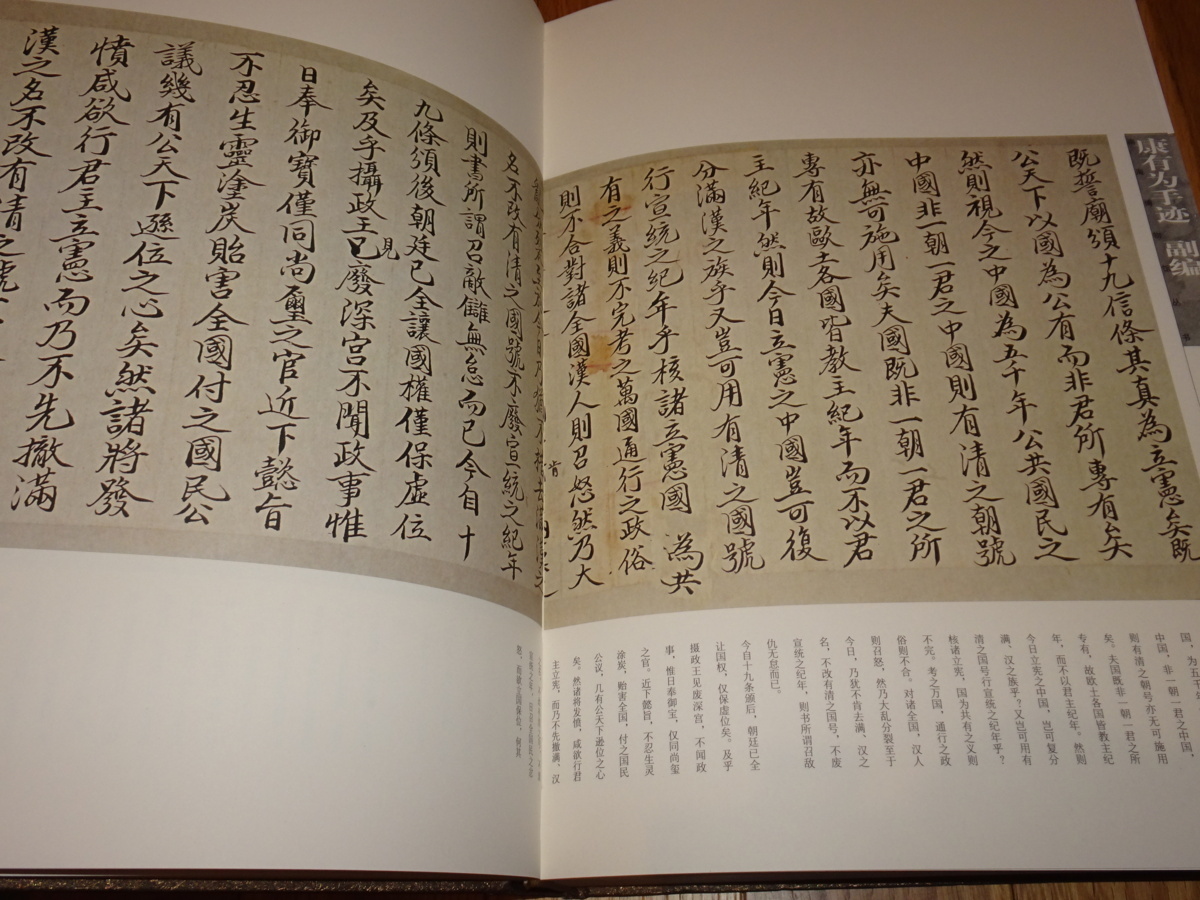 康有为手迹 副编
既誓廟頒十九信條其真為立憲矣既
公天下以國為公有而非君所專有矣
然則視今之中國為五千年公共國民之
中國非一朝一君之中國則有清之朝號
亦無可施用矣夫國既非一朝一君之所
專有故歐土各國皆教主紀年而不以君
主紀年然則今日立憲之中國豈可復
分滿漢之族乎又豈可用有清之國號
行宣統之紀年乎核諸立憲國為共
有之義則不完考之萬國通行之政俗
則不合對諸全國漢人則召怒然乃大
肯
名不改有清之國號不廢宣統之紀年
則書所謂召敵讎無怠而已今自十
九條頒後朝廷已全讓國權僅保虛位
矣及乎攝政王已見廢深宮不聞政事惟
日奉御寶僅同尚璽之官近下懿旨
不忍生靈塗炭貽害全國付之國民公
議幾有公天下遜位之心矣然諸將發
憤咸欲行君主立憲而乃不先撤滿
漢之名不改有清之號
国，为五千年
中国，非一朝一君之中国，
则有清之朝号亦无可施用
矣。夫国既非一朝一君之所
专有，故欧土各国皆教主纪
年，而不以君主纪年。然则
今日立宪之中国，岂可复分
满、汉之族乎？又岂可用有
清之国号行宣统之纪年乎？
核诸立宪，国为共有之义则
不完。考之万国，通行之政
俗则不合。对诸全国，汉人
则召怒，然乃大乱分裂至于
今日，乃犹不肯去满、汉之
名，不改有清之国号，不废
宣统之纪年，则书所谓召敌
仇无怠而已。
今自十九条颁后，朝廷已全
让国权，仅保虚位矣。及乎
摄政王见废深宫，不闻政
事，惟日奉御宝，仅同尚玺
之官。近下懿旨，不忍生灵
涂炭，贻害全国，付之国民
公议，几有公天下逊位之心
矣。然诸将发愤，咸欲行君
主立宪，而乃不先撤满、汉